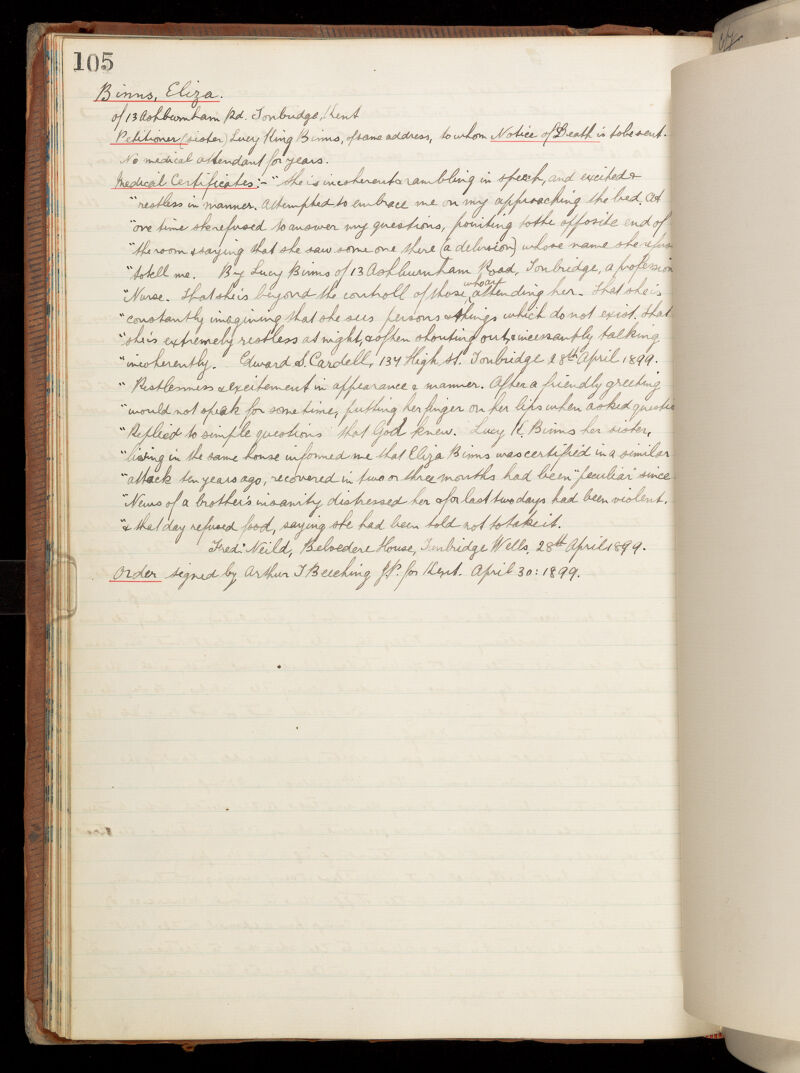 105
Binns, Eliza.
of 13 Ashburnham Rd. Tonbridge, Kent
Petitioner (sister) Lucy King Binns, of same address, to whom Notice of Death is to be sent.
No medical attendant for years.
Medical Certificates:- "She is incoherent & rambling in speech, and excited &
"restless in manner. Attempted to embrace me on my approaching the bed. At
"one time she refused to answer my questions, pointing to the opposite end of
"the room & saying that she saw some one there (a delusion) whose name she
"to tell me. By Lucy Binns of 13 Ashburnham Road, Tonbridge, a profession
"Nurse. That she is beyond the controll of those who are attending her. That she is
"constantly imagining that she sees persons & things which do not exist. That
"she is extremely restless at night, & often shouting out, & incessantly talking
"incoherently. Edward S. Cardell, 134 High St. Tonbridge 28th April 1899.
"Restlessness & excitement in appearance & manner. After a friendly greeting
"would not speak for some time, putting her finger on her lips when asked questio
"Replied to simple questions that God knew. Lucy K. Binns her sister,
"living in the same house informed me that Eliza Binns was certified in a similar
"attack ten years ago, recovered in two or three months had been "peculiar" since
"News of a brother's insanity distressed her & for last two days had been violent.
"& that day refused food, saying she had been told not to take it.
Fredk Neild, Belvedere House, Tunbridge Wells, 28th April 1899.
Order signed by Arthur T Beeching J.P. for Kent. April 30: 1899.